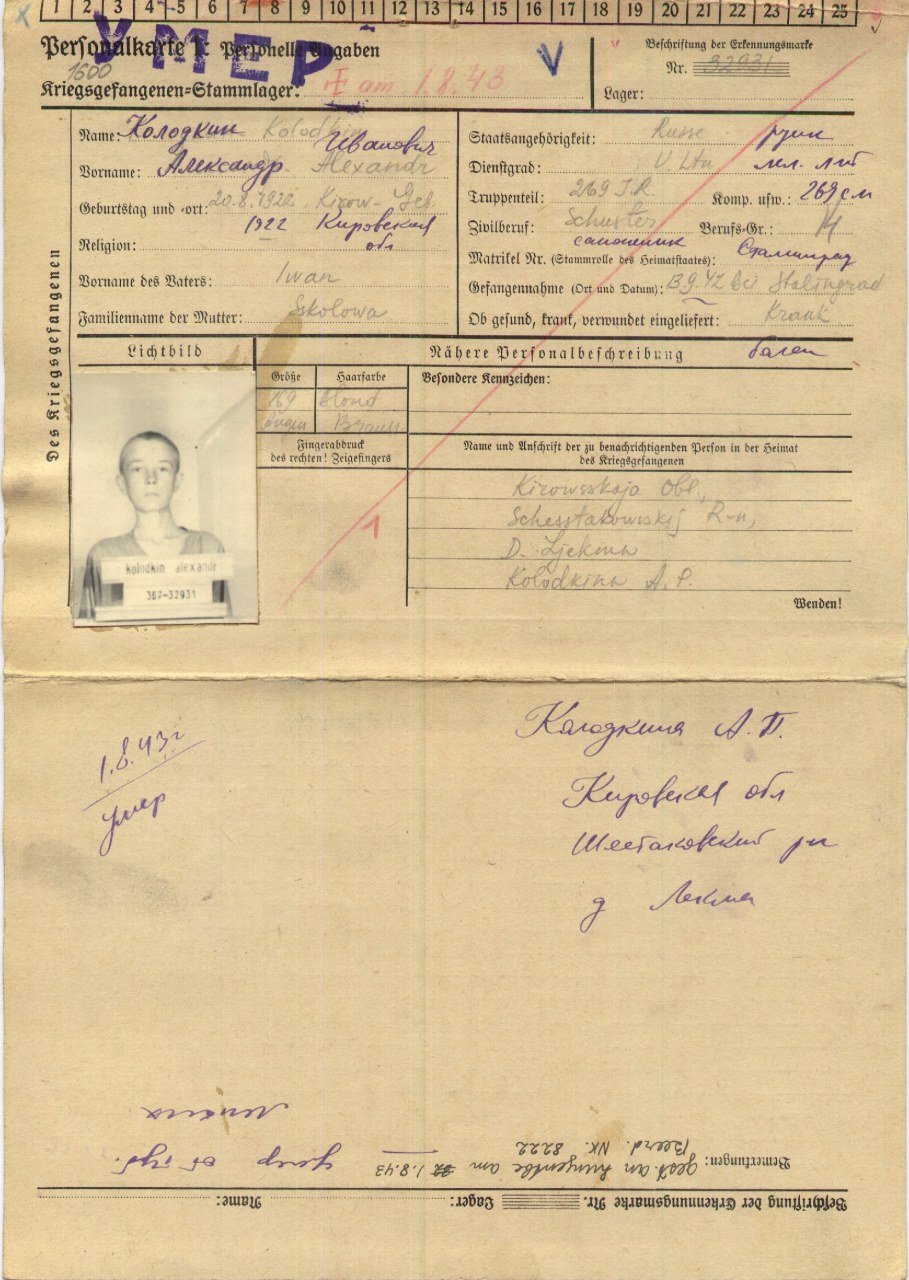 1 2 3 4 5 6 7 8 9 10 11 12 13 14 15 16 17 18 19 20 21 22 23 24 25
УМЕР
Personalkarte I: Personelle Angaben
1600
Kriegsgefangenen-Stammlager: am 1.8.43
Beschriftung der Erkennungsmarke
Nr. 32931
Lager:
Des Kriegsgefangenen
Name: Колодкин Kolodkin
Иванович
Vorname: Александр Alexandr
Geburtstag und -ort: 20.8.1922 Kirow-Geb.
1922 Кировская
обл
Religion:
Vorname des Vaters: Iwan
Familienname der Mutter: Skolowa
Staatsangehörigkeit: Russe
Dienstgrad: U. Ltn мл. лт
Truppenteil: 269 I.R. Komp. usw.: 269 сп
Zivilberuf: Schuster Berufs-Gr.: 14
сапожник
Matrikel Nr. (Stammrolle des Heimatstaates): Сталинград
Gefangennahme (Ort und Datum): 13.9.42 bei Stalingrad
Ob gesund, krank, verwundet eingeliefert: Krank
болен
Lichtbild
Nähere Personalbeschreibung
Größe Haarfarbe
169 blond
Augen Braun
Besondere Kennzeichen:
Fingerabdruck
des rechten! Zeigefingers
Name und Anschrift der zu benachrichtigenden Person in der Heimat
des Kriegsgefangenen
Kirowsskaja Obl.,
Schesstakowskij R-n,
D. Ljekma
Kolodkina A.P.
Wenden!
kolodkin alexandr
367-32931
1.8.43г
умер
Колодкина А.П.
Кировская обл
Шестаковский рн
д Лекма
Beschriftung der Erkennungsmarke Nr. Lager: Name:
Bemerkungen: gest. an am 1.8.43 умер от туб.
Beerd. NK. 8222
легких